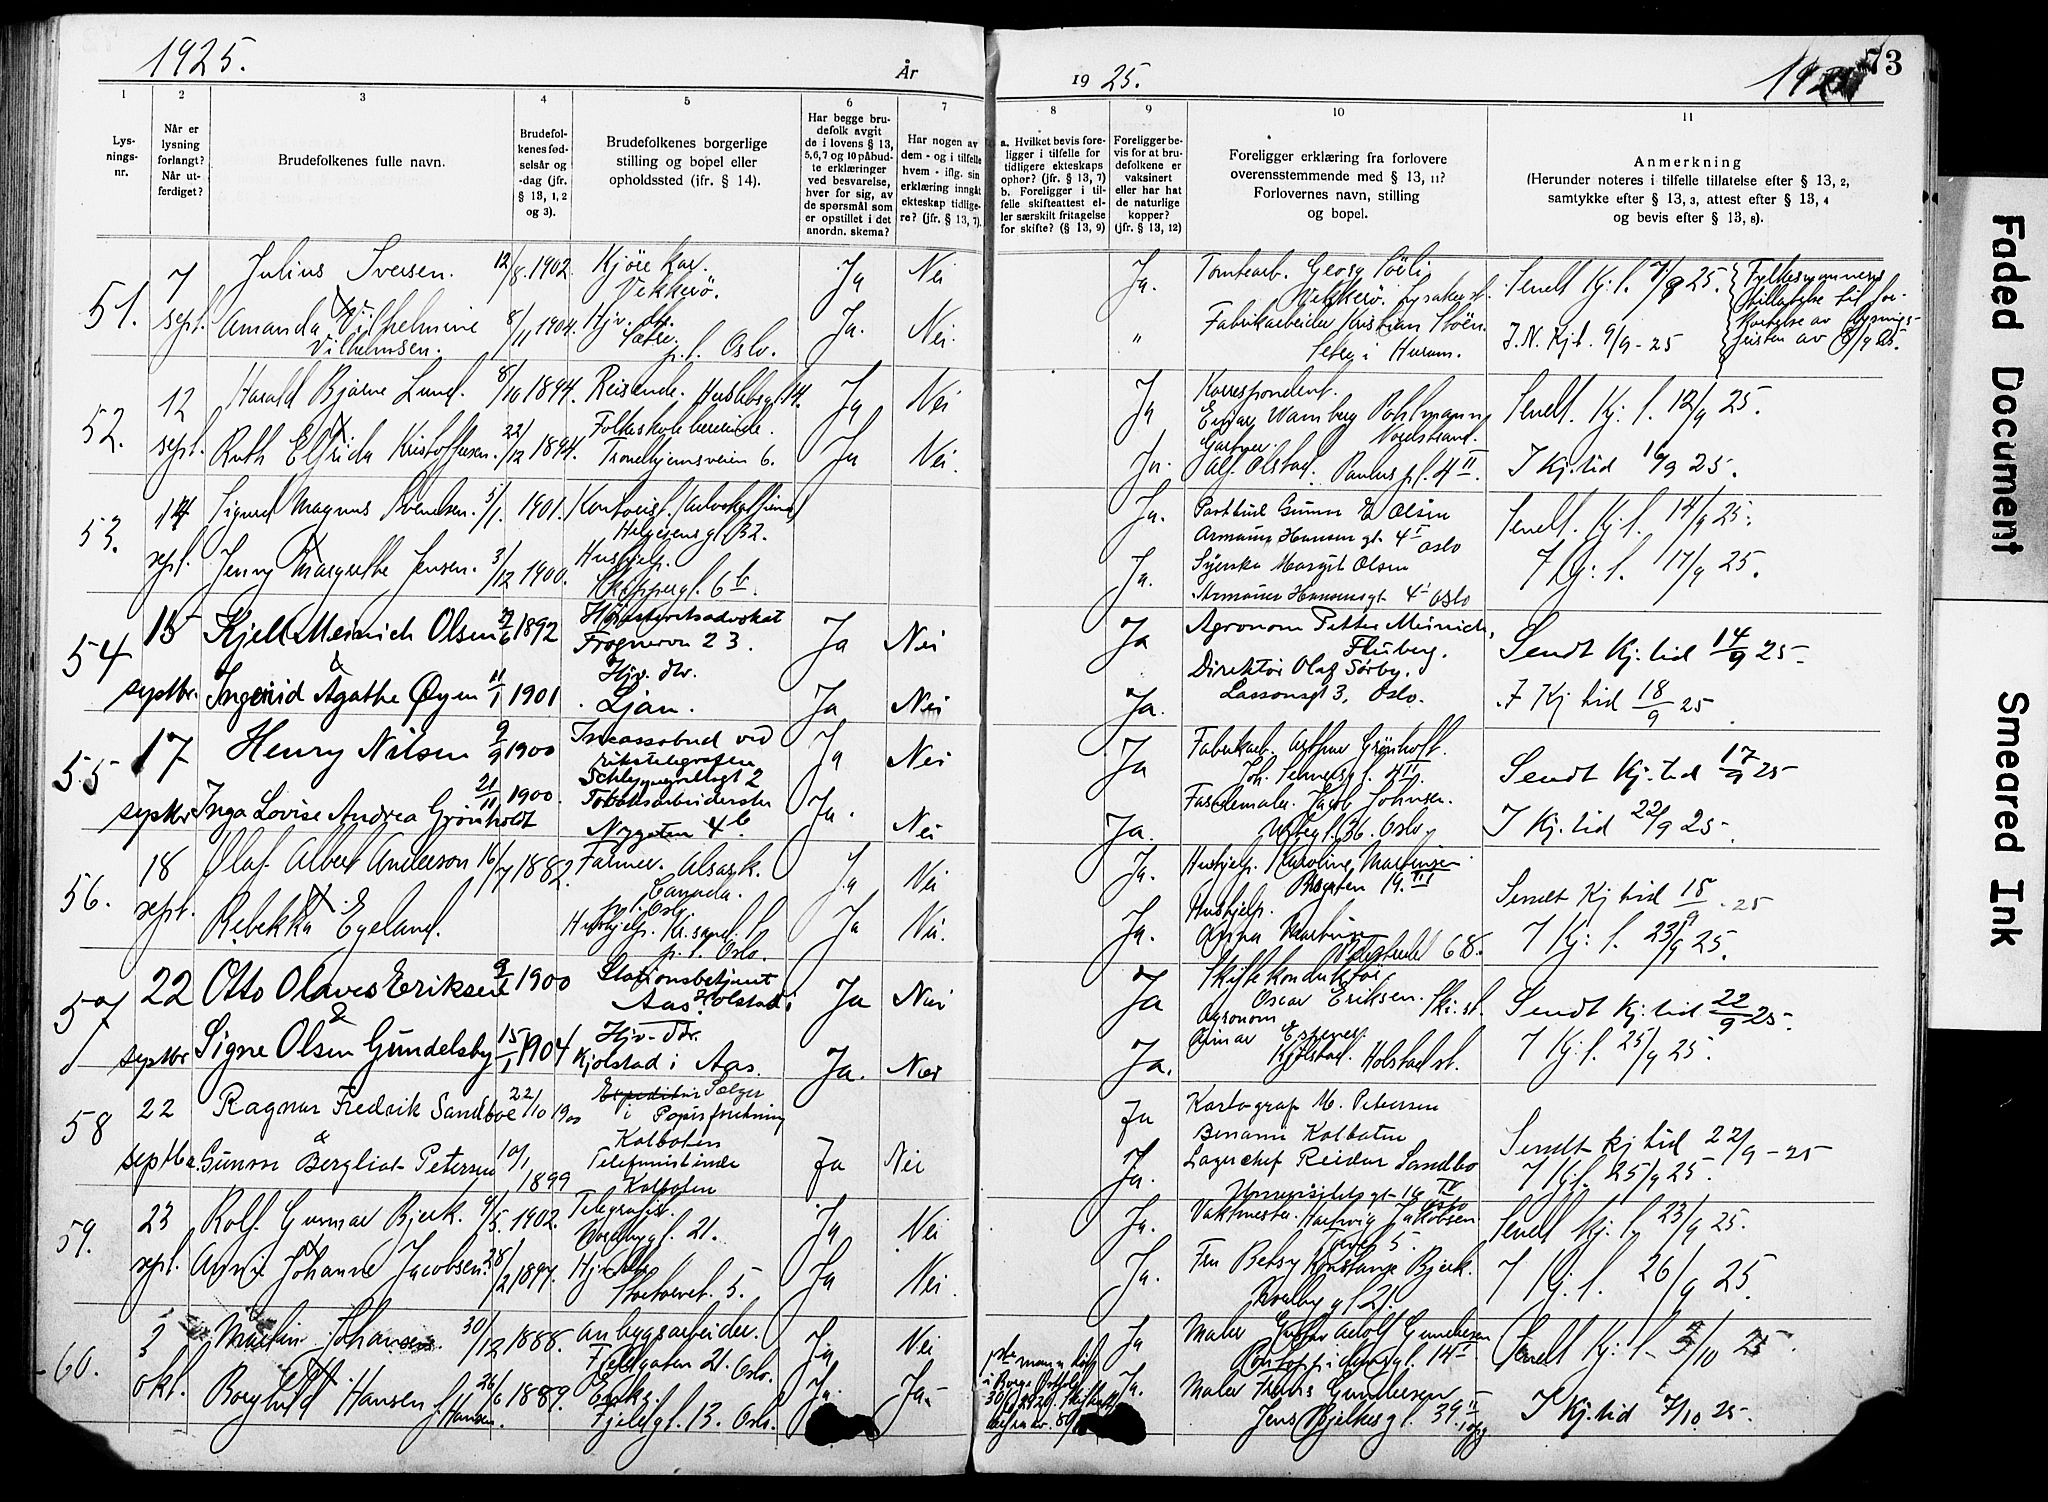 1925.
År
1925.
192
73
1
2
3
4
5
6
7
8
9
10
11
Lys-
nings-
nr.
Når er
lysning
forlangt?
Når ut-
ferdiget?
Brudefolkenes fulle navn.
Brudefol-
kenes fød-
selsår og
-dag (jfr.
§ 13, 1, 2
og 3).
Brudefolkenes borgerlige
stilling og bopel eller
opholdssted (ifr. § 14).
Har begge bru-
defolk avgit
de i lovens § 13,
5,6,7 og 10 påbud-
te erklæringer
ved besvarelse,
hver for sig, av
de spørsmål som
er opstillet i det
anordn. skema?
Har nogen av
dem - og i tilfelle
hvem - iflg. sin
erklæring inngått
ekteskap tidlige-
re? (jfr. § 13, 7).
a. Hvilket bevis fore-
ligger i tilfelle for
tidligere ekteskaps
ophør? (jfr. § 13, 7)
b. Foreligger i til-
felle skifteattest el-
ler særskilt fritagelse
for skifte? (§ 13, 9)
Foreligger be-
vis for at bru-
defolkene er
vaksinert
eller har hat
de naturlige
kopper?
(jfr. § 13, 12)
Foreligger erklæring fra forlovere
overensstemmende med § 13, 11?
Forlovernes navn, stilling
og bopel.
Anmerkning
(Herunder noteres i tilfelle tillatelse efter § 13, 2,
samtykke efter § 13, 3, attest efter § 13, 4
og bevis efter § 13, 8).
51. 7 sept.
Julius Iversen. 12/8.1902.
Kjørekar. Vekkerö. Ja Nei
Ja. Tomtearb. Georg
Vekkerö. Lysaker st.
Sendt Kj: t. 7/9 25.
Fylkesmannens
tillatelse til for-
kortelse av lysnings-
fristen av 8/9 25.
&
Amanda Vilhelmine
Vilhelmsen. 8/11 1904.
Hjv. dtr.
Sætre. p.t. Oslo. Ja. Nei.
" Fabrikarbeider Kristian
i Hurum.
I. N. Kj.t. 9/9 - 25
52. 12 sept.
Harald Bjarne Lund. 8/10 1894.
Reisende. 14. Ja Nei
Ja Korrespondent.
Einar Wamberg
Nordstrand.
Sendt. Kj: t. 12/9 25.
&
Ruth Elfrida Kristoffersen. 22/12 1894.
Folkeskolelærerinde.
Trondhjemsveien 6. Ja Nei.
Ja. Gartner.
Alf Olstad. Paulus pl. 4 II.
I Kj.tid 16/9 25.
53. 14 sept.
Sigurd Magnus Svendsen. 5/1. 1901.
Kontorist.
Helgesens gt. 32.
Ja. Gunnar E Olsen
Armauer Hansens gt. 4 I Oslo
Sendt. Kj: t. 14/9 25.
&
Jenny Margrethe Jensen. 3/12 1900.
Hushjelp.
Skippergt. 6 b.
Ja. Syerske Margit Olsen
Armauer Hansensgt 4 I Oslo
I Kj: t. 17/9 25.
54 15 septbr.
Kjell Meinich Olsen 1892
Høiesteretsadvokat
Frognervn 23. Ja Nei
Ja Agronom Petter Meinich,
Fluberg.
Sendt Kj. tid 14/9 25.
&
Ingerid Agathe Øyen 11/1 1901
Hjv. dtr.
Ljan. Ja Nei
Ja. Direktör Olaf Sörby.
Lassonsgt 3, Oslo.
I Kj tid 18/9 25
55 17 septbr
Henry Nilsen 9/9 1900
Incassobud ved
rikstelegrafen
Schleppegrellsgt 2 Ja Nei
Ja Fabrikarb. Arthur Grönholt.
Joh. Selmersgt. 4 II.
Sendt Kj. tid 17/9 25
Inga Lovise Andrea Grönholdt 21/11 1900.
Tobaksarbeiderske
Nygaten 4 b. Ja. Nei
Ja. Fasademaler. Jacob Johnsen.
Oslo
I Kj. tid 22/9 25.
56. 18 sept.
Olaf Albert Anderson 16/7 1882.
Farmer. Alsask.
Canada.
p.t. Oslo Ja Nei
Ja. Hushjelp. Karoline Martinsen
19. III
Sendt Kj tid 18/9. 25
&
Rebekka E. Egeland.
Hushjelp. Kr.sand. S
p.t. Oslo. Ja Nei.
Ja. Hushjelp.
Anna Martinsen
68.
I Kj: t. 23/9 25.
57 22 septbr
Otto Olaves Eriksen 9/1 1900
Stationsbetjent
Holstad i Aas. Ja Nei
Ja Skiftekonduktör
Oscar Eriksen. Ski. st.
Sendt Kj. tid 22/9 25.
&
Signe Olsen Gundelsby 15/1 1904
Hjv. dtr.
Kjolstad i Aas. Ja. Nei
Ja. Agronom
Einar Espenes.
Kjølstad. Holstad st.
I Kj: t. 25/9 25.
58 22 septbr.
Ragnar Fredrik Sandboe 22/10 1900
Expeditør Selger
i Papirforretning
Kolbotten
Ja Kartograf M. Petersen
Kolbotn
Sendt kj tid 22/9 - 25
&
Gunvor Bergliot Petersen 10/1 1899
Telefonistinde
Kolboten Ja Nei
Ja. Lagerchef Reidar Sandbo
Universitetsgt 14 IV Oslo
I Kj.t. 25/9 25.
59. 23 sept.
Rolf Gunnar Bjerk. 4/5. 1902.
Telegrafist.
21. Ja Nei
Ja. Vaktmester. Hartvig Jakobsen
5.
Sendt kj. t. 23/9 25.
&
Anni Johanne Jacobsen. 28/2 1897.
Hjv. dtr.
Stortorvet. 5. Ja Nei.
Ja. Fru Betsy Konstanse Bjerk.
gt 21.
I Kj. t. 26/9 25.
60. 3 okt.
Martin Johansen. 30/12 1888.
Anlægsarbeider.
Fjeldgaten 21. Oslo. Ja Nei
Ja Maler Gustav Adolf Gundersen
Pontoppidansgt. 14 I.
Sendt Kj: t. 3/10 25.
&
Borghild Hansen f. Hansen. 26/6 1889.
Enke.
Fjeldgt. 13. Oslo. Ja. Ja.
1ste mann död
i Borge Østfold
Ja. Maler Frans Gundersen
Jens Bjelkesgt. 39 II
I Kj. tid 7/10 25.
Faded Document
Smeared Ink